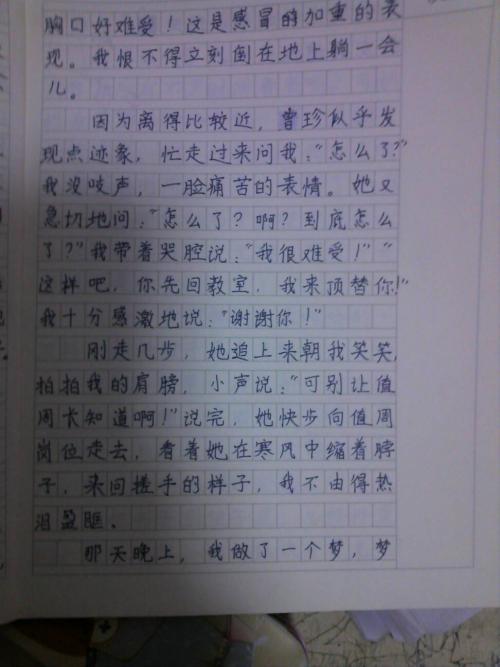 胸口好难受！这是感冒时加重的表
现。我恨不得立刻倒在地上躺一会
儿。
因为离得比较近，曾珍似乎发
现点迹象，忙走过来问我：“怎么了？”
我没吱声，一脸痛苦的表情。她又
急切地问：“怎么了？啊？到底怎么
了？”我带着哭腔说：“我很难受！”“
这样吧，你先回教室，我来顶替你！”
我十分感激地说：“谢谢你！”
刚走几步，她追上来朝我笑笑，
拍拍我的肩膀，小声说：“可别让值
周长知道啊！”说完，她快步向值周
岗位走去，看着她在寒风中缩着脖
子，来回搓手的样子，我不由得热
泪盈眶。
那天晚上，我做了一个梦，梦